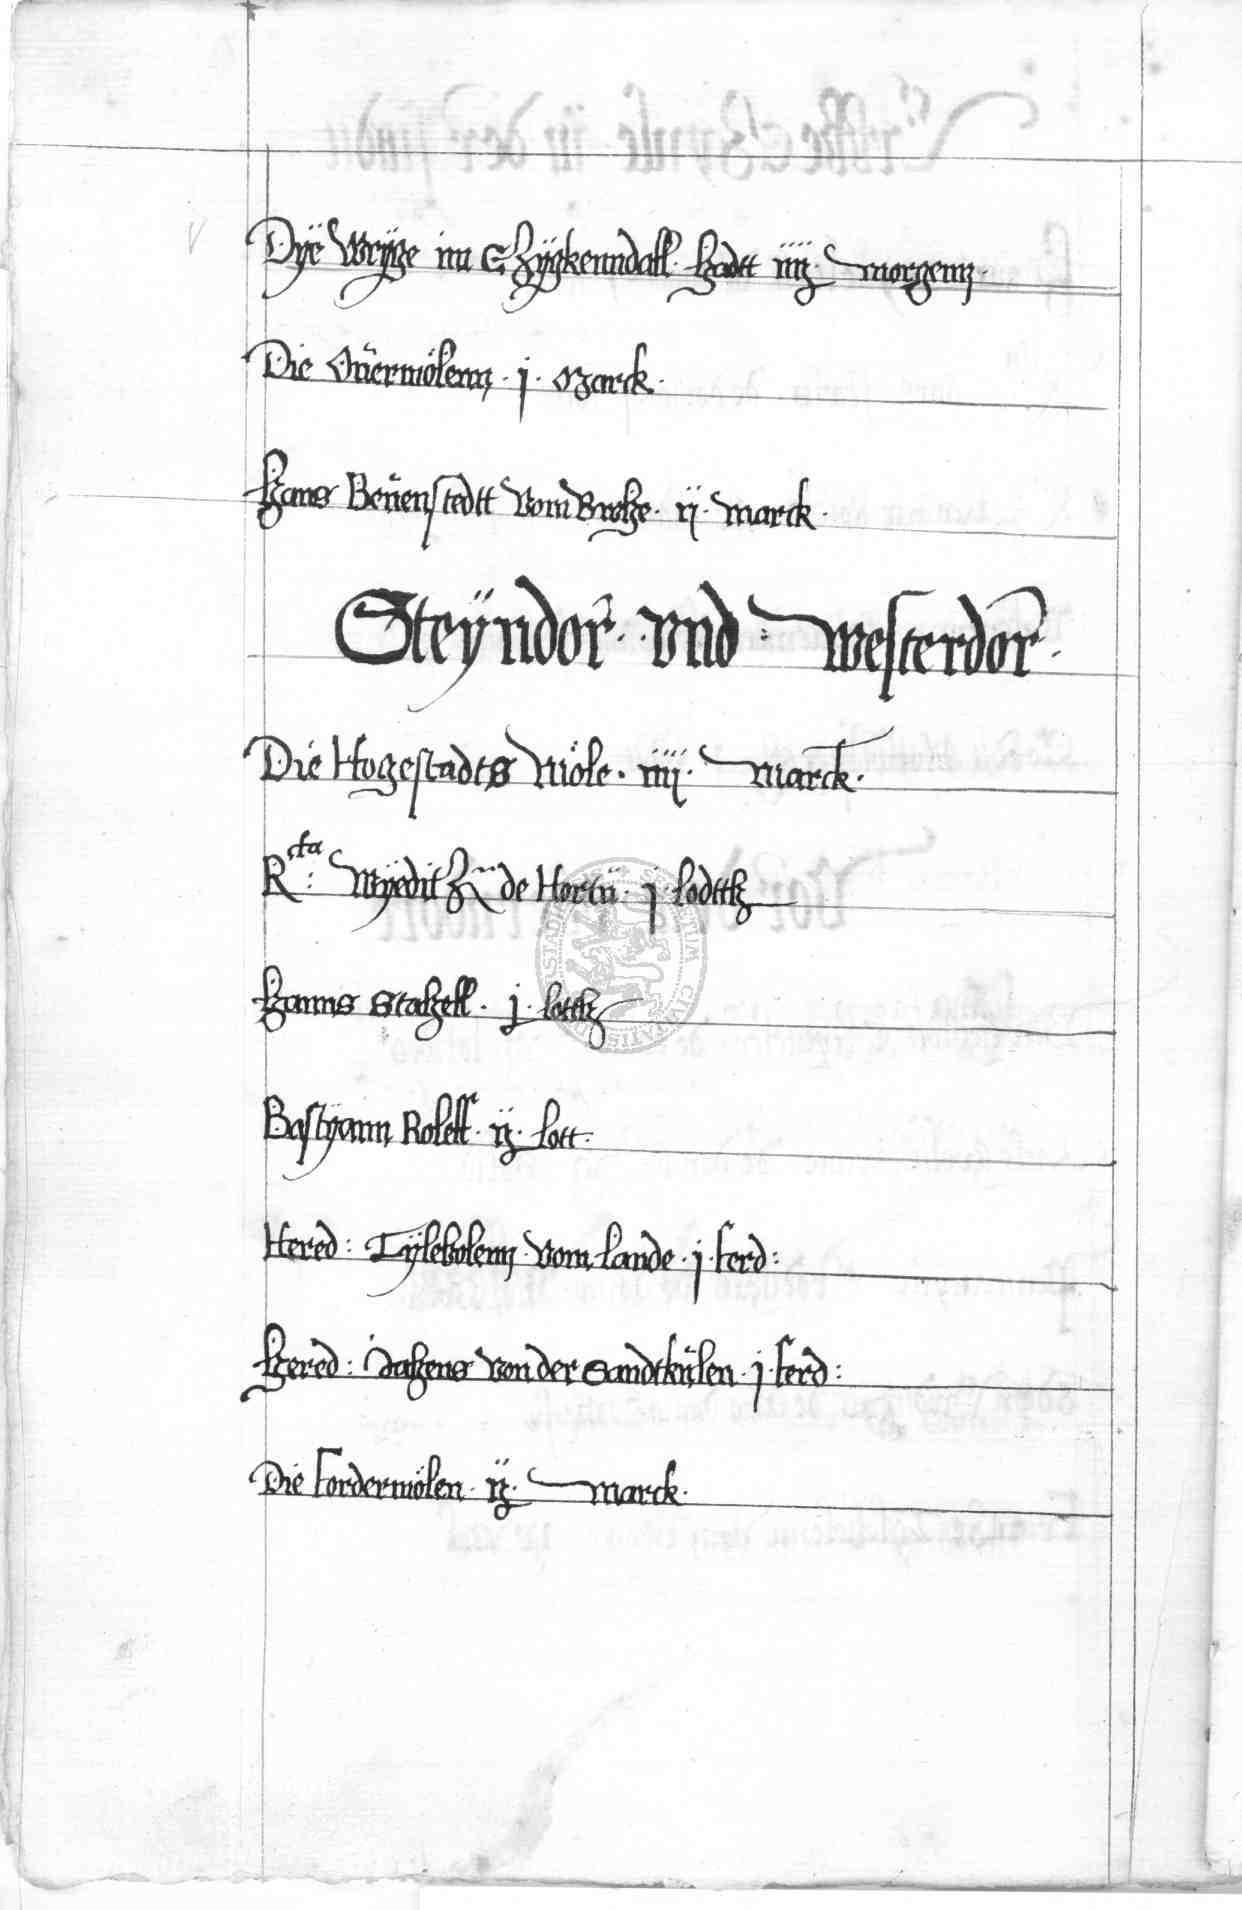 Dÿe Weÿße im Czÿgkenndall · hadtt · iiij · morgenn ·
Die Ouermölenn · j · Marck ·
Hans Beuenstedtt vom Broke · ij · marck ·
Steÿndor · vnd · westerdor ·
Die Hogestadts Möle · iiij · marck ·
R cta : de Hortu · j · lodtt
Hanns Stahell · j · lott
Bastÿann Rolell · ij · lott ·
Hered : Tÿlebolenn vom lande · j · ferd :
Hered : von der Sandtkulen · j · ferd :
Die fordermölen · ij · marck ·